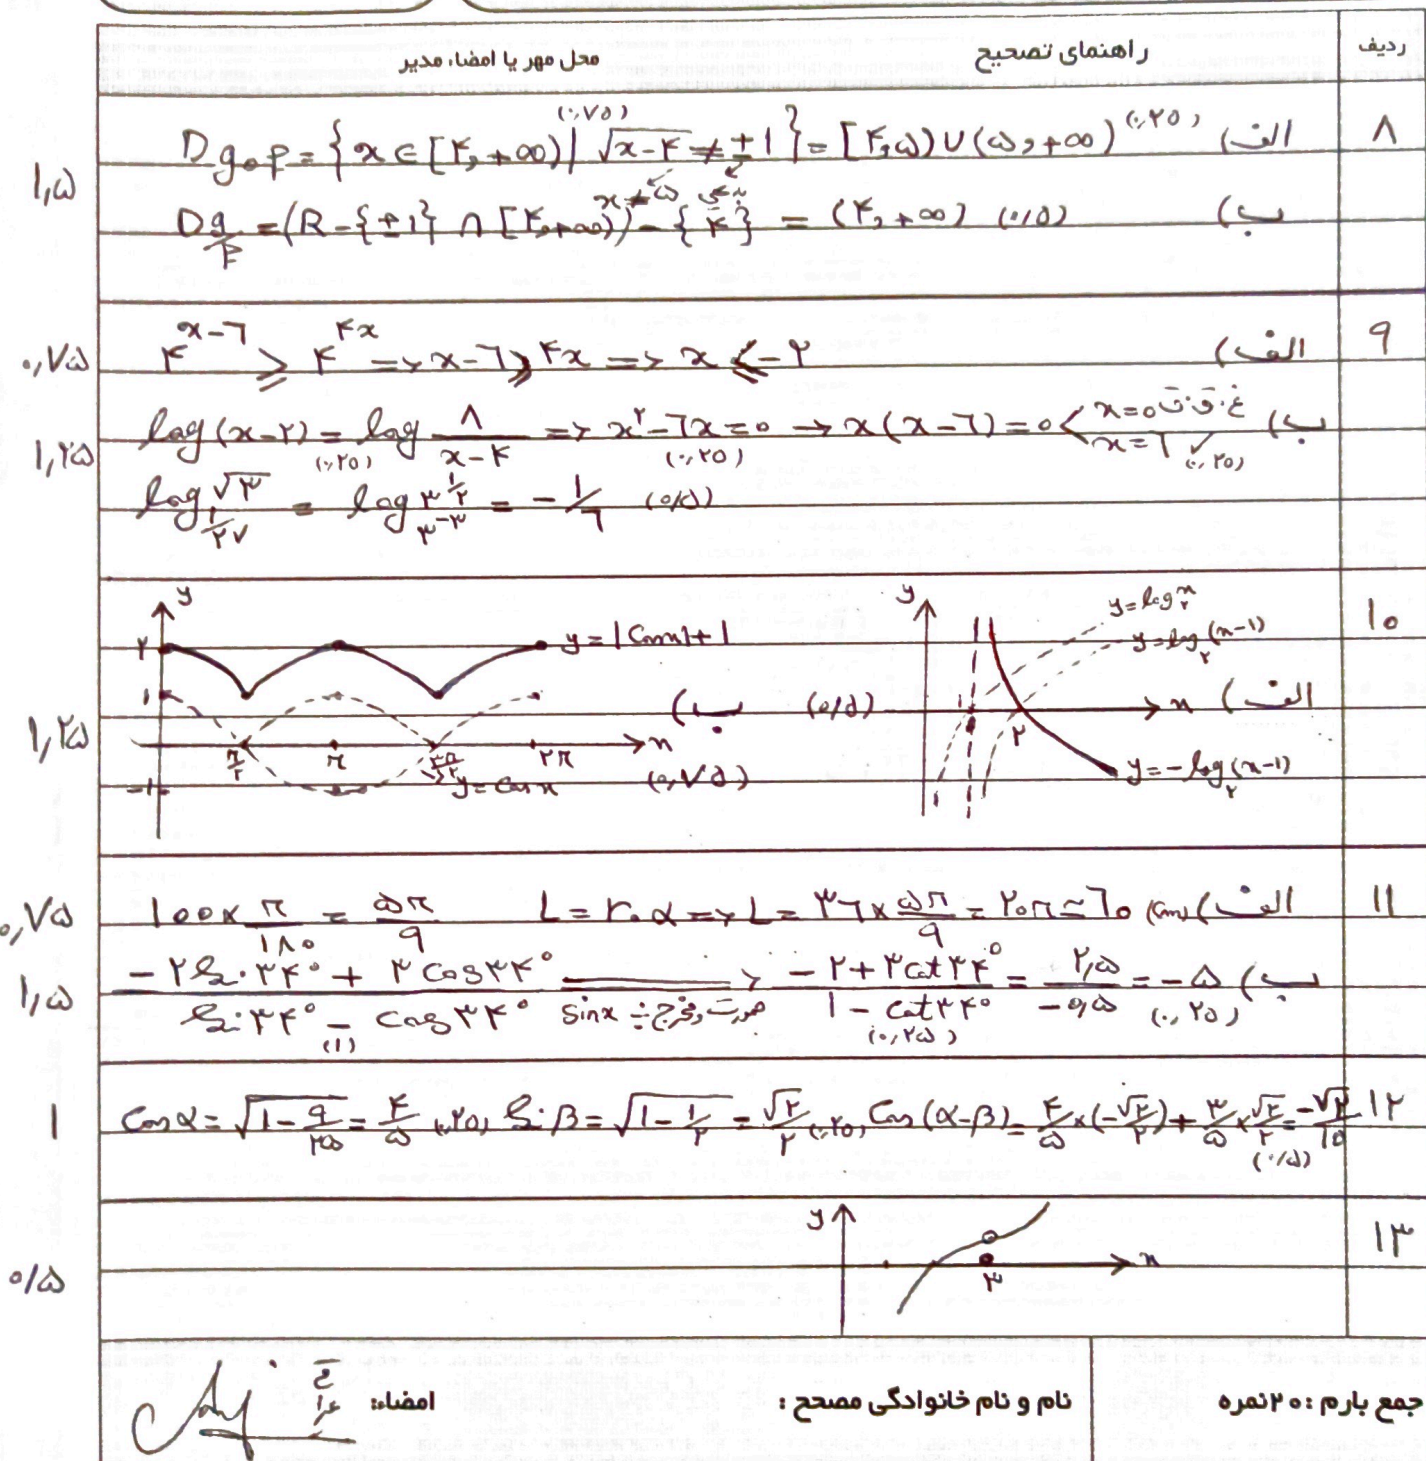 ردیف	راهنمای تصحیح	محل مهر یا امضاء مدیر
۸	الف) D gof = { x ∈ [۴, +∞) | √(x-۴) ≠ ±۱ } = [۴,۵) ∪ (۵, +∞)	(۰,۷۵)	(۰,۲۵)
x ≠ ۵
۱,۵
ب) D g/f = (R - {±۱} ∩ [۴, +∞)) - {۴} = (۴, +∞) (۰/۵)
۹	الف) ۴^(x-۶) ≥ ۴^(۴x) => x-۶ ≥ ۴x => x ≤ -۲	۰,۷۵
ب) log(x-۲) = log ۸/(x-۴) => x^۲ - ۶x = ۰ → x(x-۶) = ۰ < x=۰ غ.ق.ق / x=۶ ✓	۱,۲۵
(۰,۲۵)	(۰,۲۵)	(۰,۲۵)
log_(۱/۲۷) √۳ = log_(۳^-۳) ۳^(۱/۲) = -۱/۶ (۰/۵)
۱۰	الف) y = log_۲ x
y = log_۲ (x-۱)
y = -log_۲ (x-۱)
y	x	۱	۲	(۰/۵)
ب) y = |Cosx| + ۱
y = Cosx
y	x	۲	۱	-۱	π/۲	π	۳π/۲	۲π	(۰,۷۵)
۱,۲۵
۱۱	الف) ۱۰۰ × π/۱۸۰ = ۵π/۹	L = r.α => L = ۳۶ × ۵π/۹ = ۲۰π ≃ ۶۰ (cm)	۰,۷۵
ب) (-۲ Sin ۳۴° + ۳ Cos ۳۴°)/(Sin ۳۴° - Cos ۳۴°) ===> صورت و مخرج ÷ sinx (-۲ + ۳ Cot ۳۴°)/(۱ - Cot ۳۴°) = ۲,۵/-۰,۵ = -۵	۱,۵
(۱)	(۰,۲۵)	(۰,۲۵)
۱۲	Cos α = √(۱ - ۹/۲۵) = ۴/۵ (۰,۲۵) Sin β = √(۱ - ۱/۲) = √۲/۲ (۰,۲۵) Cos(α-β) = ۴/۵ × (-√۲/۲) + ۳/۵ × √۲/۲ = -√۲/۱۰	۱
(۰/۵)
۱۳	y	x	۳	۰/۵
جمع بارم : ۲۰ نمره	نام و نام خانوادگی مصحح :	امضاء: